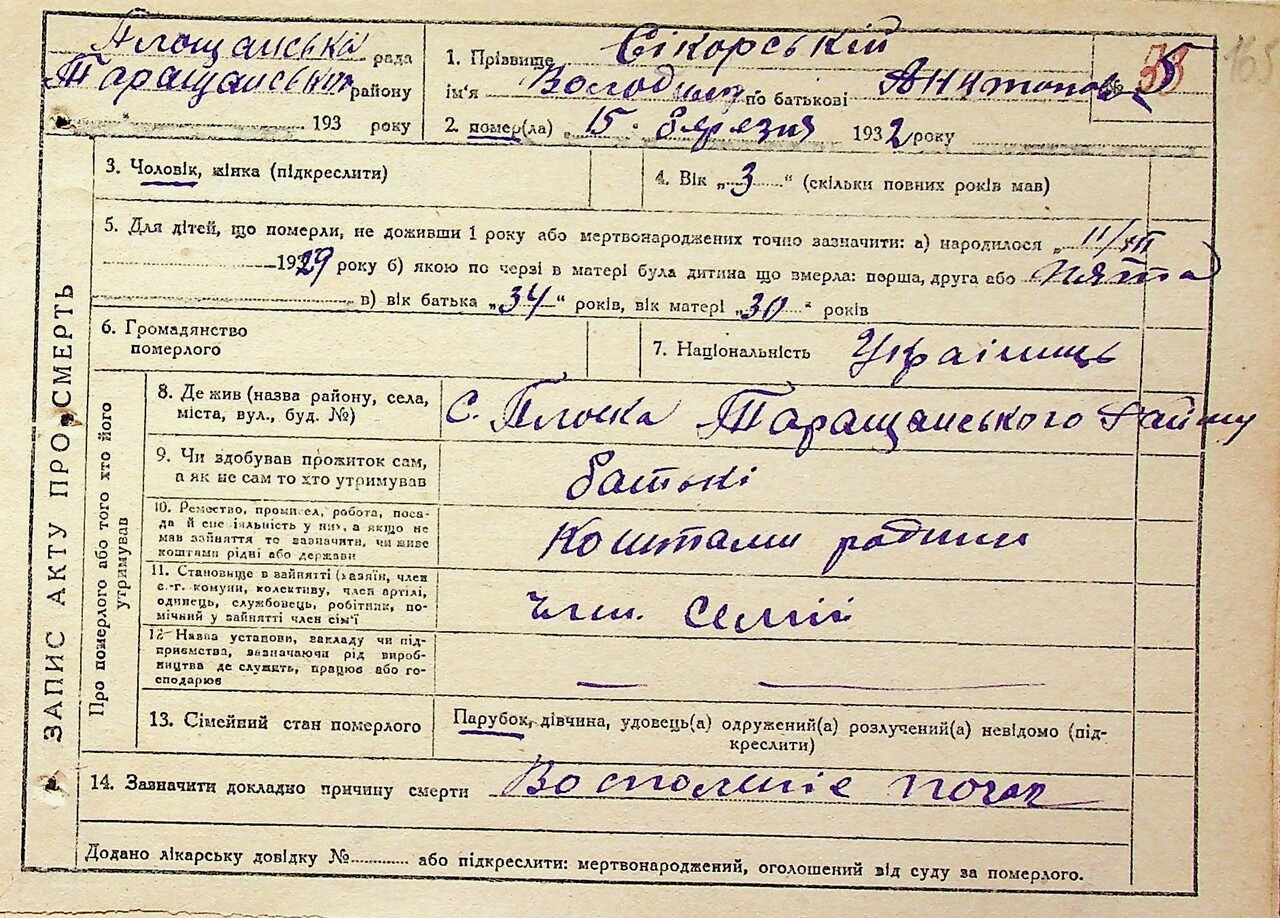 Площанська рада
Таращанськ району
" 193 року
1. Прізвище Сікорській
ім'я Володим. по батькові Антонов
2. помер(ла) „ 15 " березня 1932 року
165
ЗАПИС АКТУ ПРО СМЕРТЬ
3. Чоловік, жінка (підкреслити)
4. Вік „ 3 " (скільки повних років мав)
5. Для дітей, що померли, не доживши 1 року або мертвонароджених точно зазначити: а) народилося „ 11/XII
1929 року б) якою по черзі в матері була дитина що вмерла: перша, друга або пята
в) вік батька „34" років, вік матері „30" років
6. Громадянство
померлого
7. Національність Українець
Про померлого або того хто його
утримував
8. Де жив (назва району, села,
міста, вул., буд. №)
С. Плоска Таращанського Району
9. Чи здобував прожиток сам,
а як не сам то хто утримував
батькі
10. Ремество, промисел, робота, поса-
да й спеціяльність у них, а якщо не
мав зайняття то зазначити, чи живе
коштами рідні або держави
Коштами родини
11. Становище в зайнятті (хазяїн, член
с.-г. комуни, колективу, член артілі,
одинець, службовець, робітник, по-
мічний у зайнятті член сім'ї
член. Семїї
12 Назва установи, закладу чи під-
приємства, зазначаючи рід вироб-
ництва де служить, працює або го-
сподарює
13. Сімейний стан померлого
Парубок, дівчина, удовець(а) одружений(а) розлучений(а) невідомо (під-
креслити)
14. Зазначити докладно причину смерти Восполеніе почок
Додано лікарську довідку №............ або підкреслити: мертвонароджений, оголошений від суду за померлого.